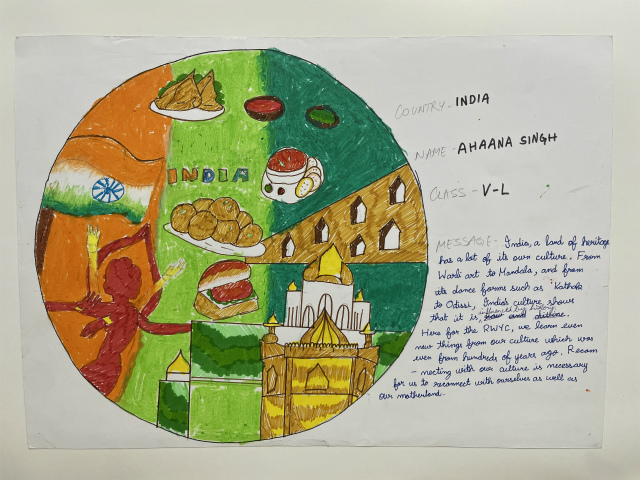 INDIA
COUNTRY - INDIA
NAME - AHAANA SINGH
CLASS - V-L
MESSAGE - India, a land of heritage
has a lot of its own culture. From
Warli art to Mandala, and from
its dance forms such as Kathak
to Odissi, India's culture shows
that it is influenced by history
Here for the RWYC, we learn even
new things from our culture which was
even from hundreds of years ago. Recon
- necting with our culture is necessary
for us to reconnect with ourselves as well as
our motherland.